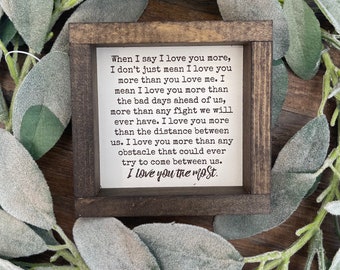 When I say I love you more,
I don't just mean I love you
more than you love me. I
mean I love you more than
the bad days ahead of us,
more than any fight we will
ever have. I love you more
than the distance between
us. I love you more than any
obstacle that could ever
try to come between us.
I love you the most.